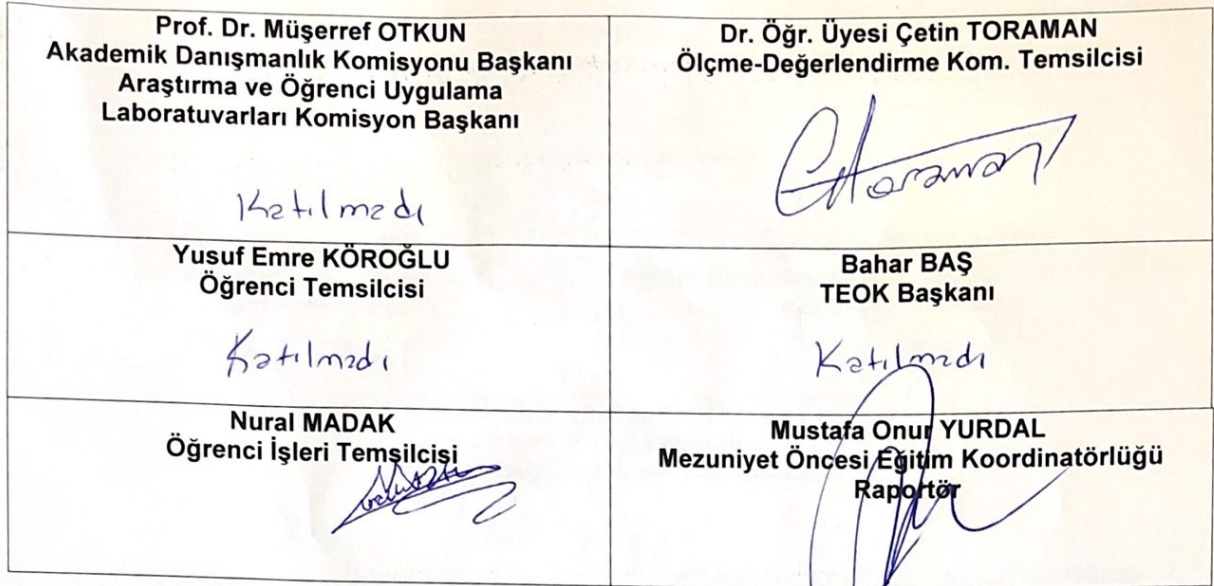 Prof. Dr. Müşerref OTKUN
Akademik Danışmanlık Komisyonu Başkanı
Araştırma ve Öğrenci Uygulama
Laboratuvarları Komisyon Başkanı
Katılmadı
Dr. Öğr. Üyesi Çetin TORAMAN
Ölçme-Değerlendirme Kom. Temsilcisi
CToraman
Yusuf Emre KÖROĞLU
Öğrenci Temsilcisi
Katılmadı
Bahar BAŞ
TEOK Başkanı
Katılmadı
Nural MADAK
Öğrenci İşleri Temsilcisi
Mustafa Onur YURDAL
Mezuniyet Öncesi Eğitim Koordinatörlüğü
Raportör